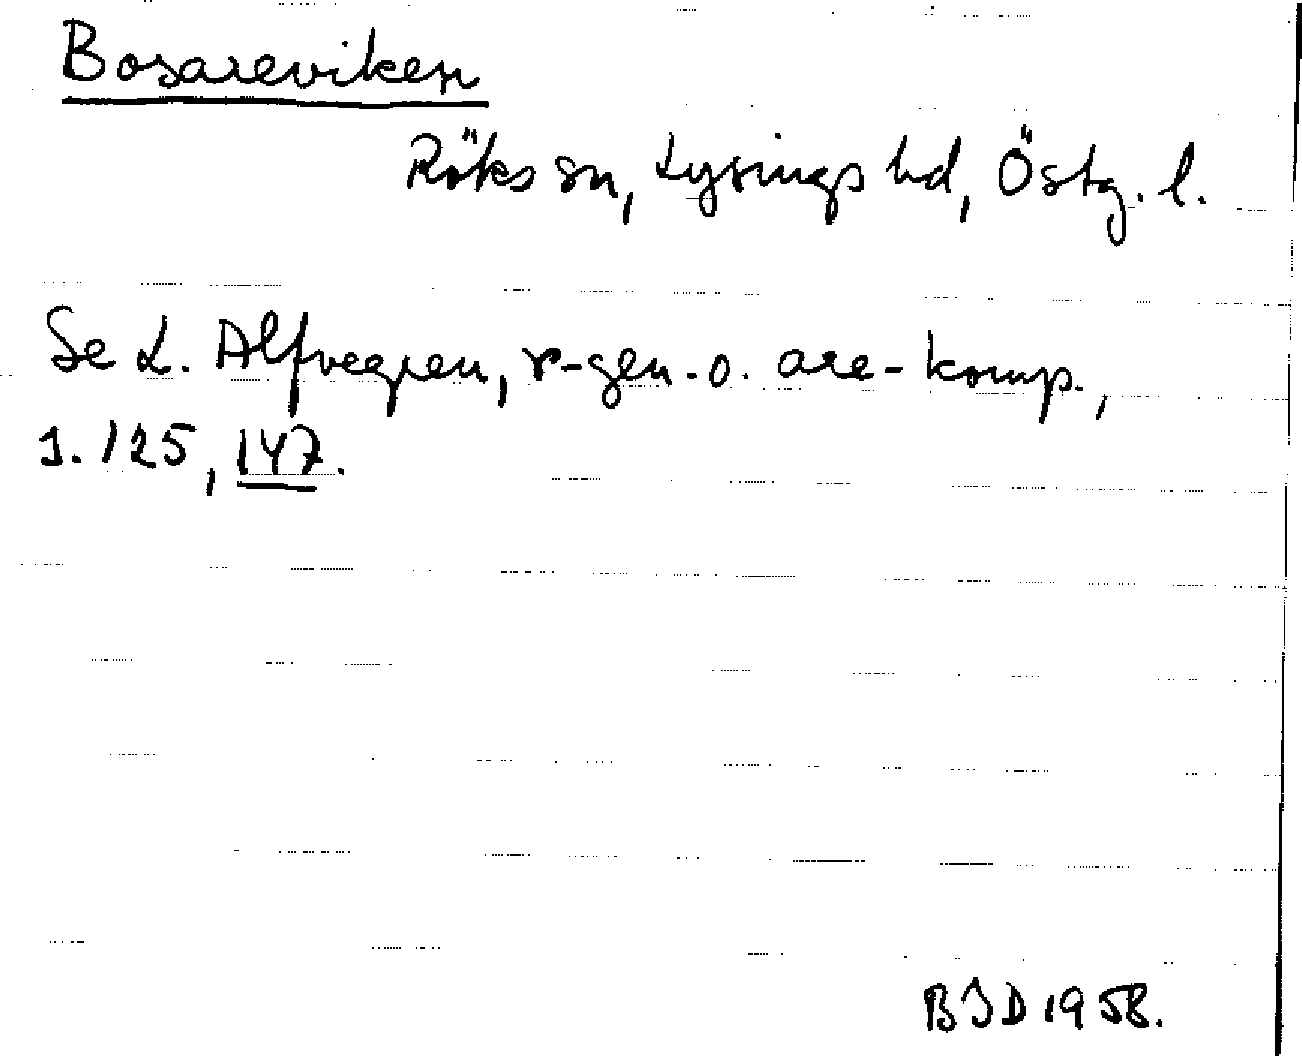 Bosareviken
Röks sn, Lysings hd, Östg. l.
Se L. Alfvegren, r-gen. o. are-komp.,
s. 125, 147.
BJD 1958.